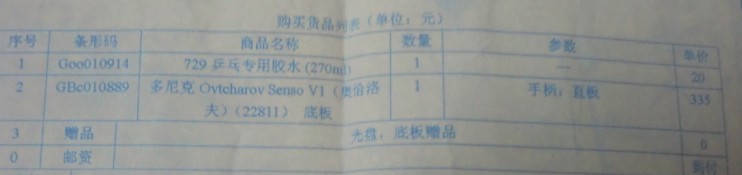 购买货品列表（单位：元）
序号 条形码 商品名称 数量 参数 单价
1 Goo010914 729 乒乓专用胶水 (270ml) 1 — 20
2 GBc010889 多尼克 Ovtcharov Senso V1（奥恰洛 1 手柄：直板 335
夫）（22811） 底板
3 赠品 光盘，底板赠品 0
0 邮资